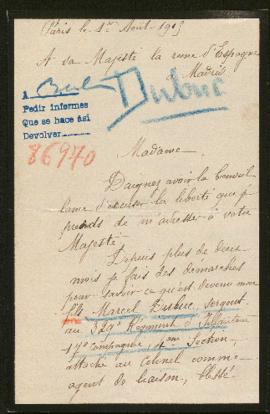 Paris le 1er Aout 1915
A Sa Majesté la reine d'Espagne
Madrid
A
Pedir informes
Que se hace ási
Devolver
Dubuc
86970
Madame
Daignez avoir la bienveil
lance d'excuser la liberté que je
prends de m'adresser à votre
Majesté.
Depuis plus de deux
mois je fais des démarches
pour savoir ce qu'est devenu mon
fils Marcel Dubuc, sergent
au 329e Régiment d'Infanterie
17e Compagnie, Section,
attaché au Colonel comme
agent de liaison, blessé